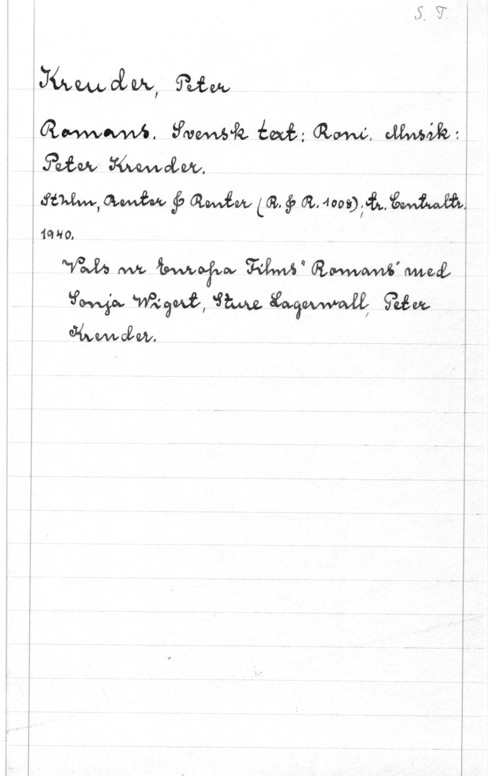 S. T.
Kreuder, Peter
Romans. Svensk text: Roni. Musik:
Peter Kreuder.
Sthlm, Reuter & Reuter (R. & R. 1008); tr. Centraltr.
1940.
Vals ur Europa Films "Romans" med
Sonja Wigert, Sture Lagerwall, Peter
Kreuder.